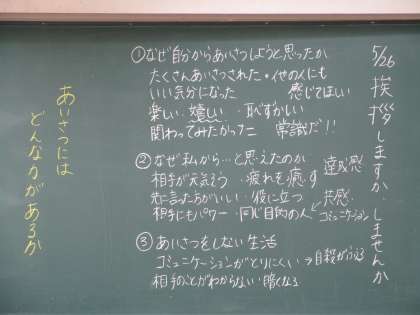 5/26
挨拶しますか しませんか
①なぜ自分からあいさつしようと思ったか
たくさんあいさつされた・他の人にも
いい気分になった 感じてほしい
楽しい・嬉しい・恥ずかしい
関わってみたかった 常識だ!!
②なぜ私から…と思えたのか 達成感
相手が元気そう・疲れを癒す
先に言った方がいい・役に立つ 共感
相手にもパワー・同じ目的の人 コミュニケーション
③あいさつをしない生活
コミュニケーションがとりにくい→自殺がふえる
相手のことがわからない・暗くなる
あいさつには
どんな力があるか